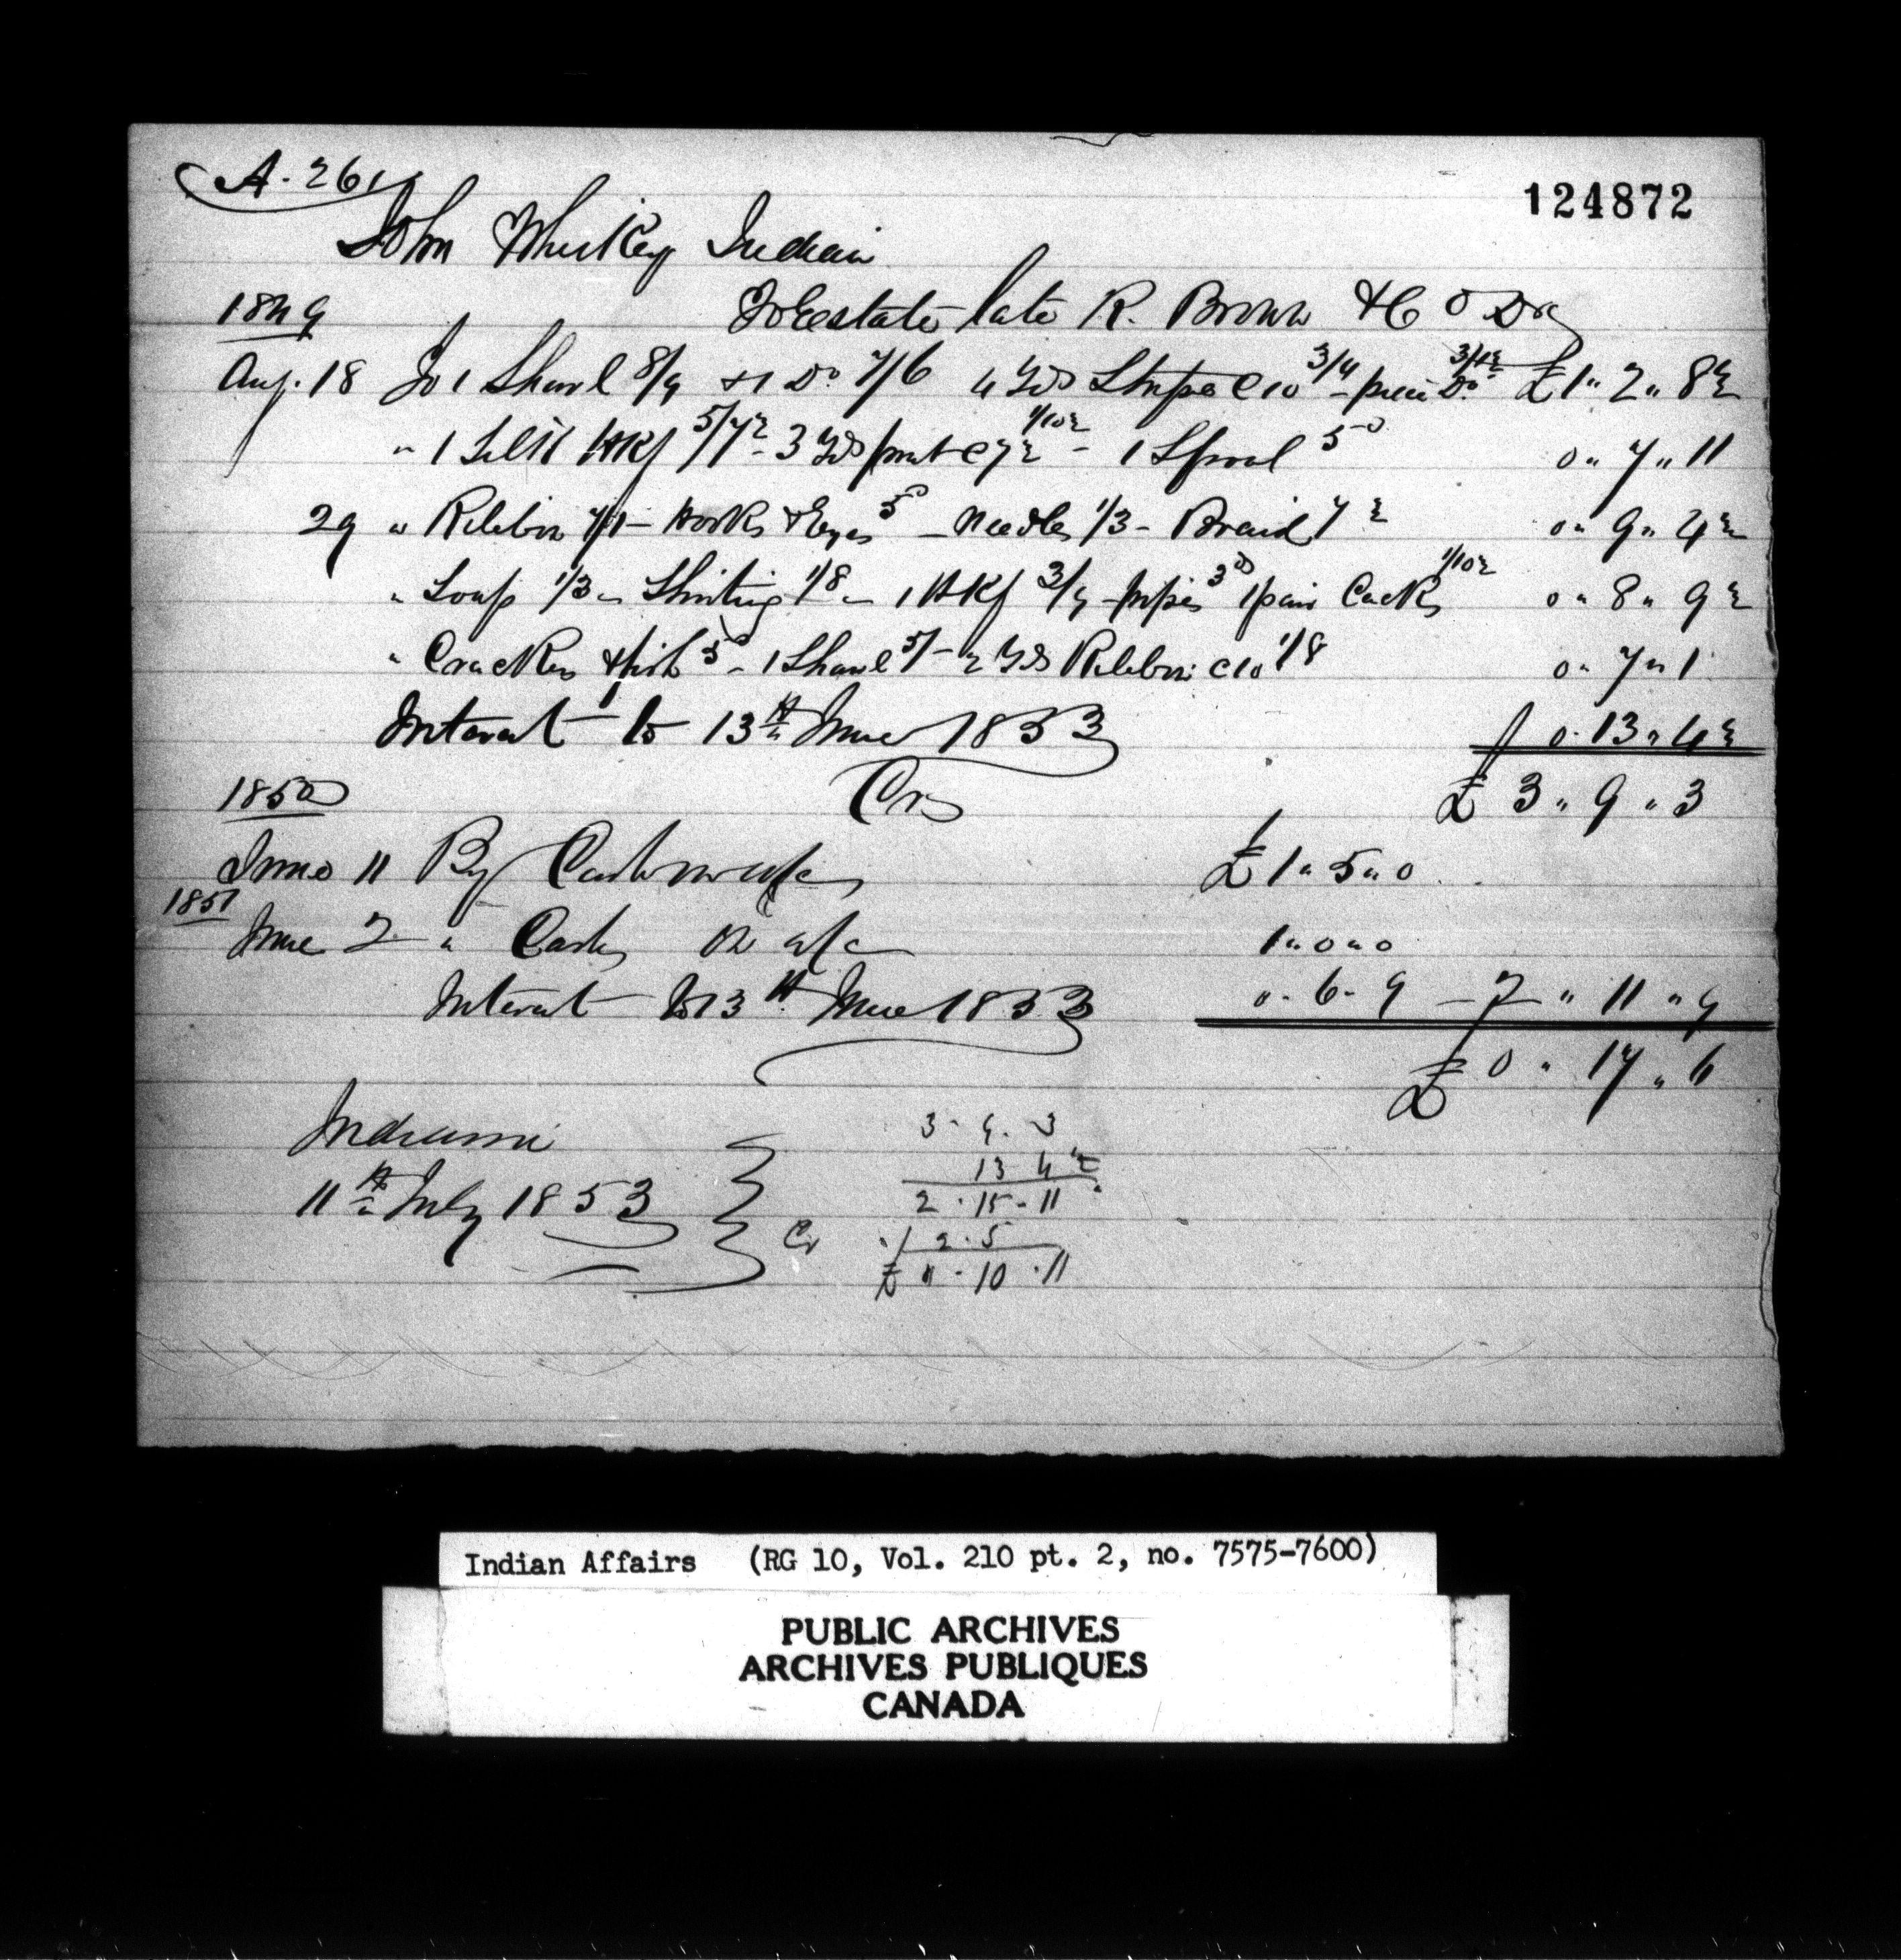 A. 261
124872
John Whiskey Indian
1849 To Estate late R. Brown & Co Dr
Aug. 18 To 1 Shawl 8/9 & 1 Do 7/6 4 Yds Stripe @ 10 3/4 - piece Do £1 " 2 " 8½
" 1 Silk Hkf 5/7½ - 3 Yds print @ 7½ 1/10½ - 1 Spool 5d 0 " 7 " 11
29 " Ribbon 7/1 - Hooks & Eyes 5d - Needles 1/3 - Braid 7½ 0 " 9 " 4½
" Soap 1/3 - Shirting 1/8 - 1 Hkf 3/9 - pipes 3d 1 pair Cacks 1/10½ 0 " 8 " 9½
" Crackers & fish 5d - 1 Shawl 5/- 2 Yds Ribbon @ 10 1/8 0 " 7 " 1
Interest to 13th June 1853 0 " 13 " 4½
Cr £ 3 " 9 " 3
1850
June 11 By Cash on a/c £ 1 " 5 " 0
1851
June 2 " Cash on a/c 1 " 0 " 0
Interest to 13th June 1853 0 - 6 - 9 - 2 " 11 " 9
£ 0 " 17 " 6
Indiana
11th July 1853
3 - 9 - 3
13 4½
2 - 15 - 11
Cr 2 - 5
£ 0 - 10 - 11
Indian Affairs (RG 10, Vol. 210 pt. 2, no. 7575-7600)
PUBLIC ARCHIVES
ARCHIVES PUBLIQUES
CANADA